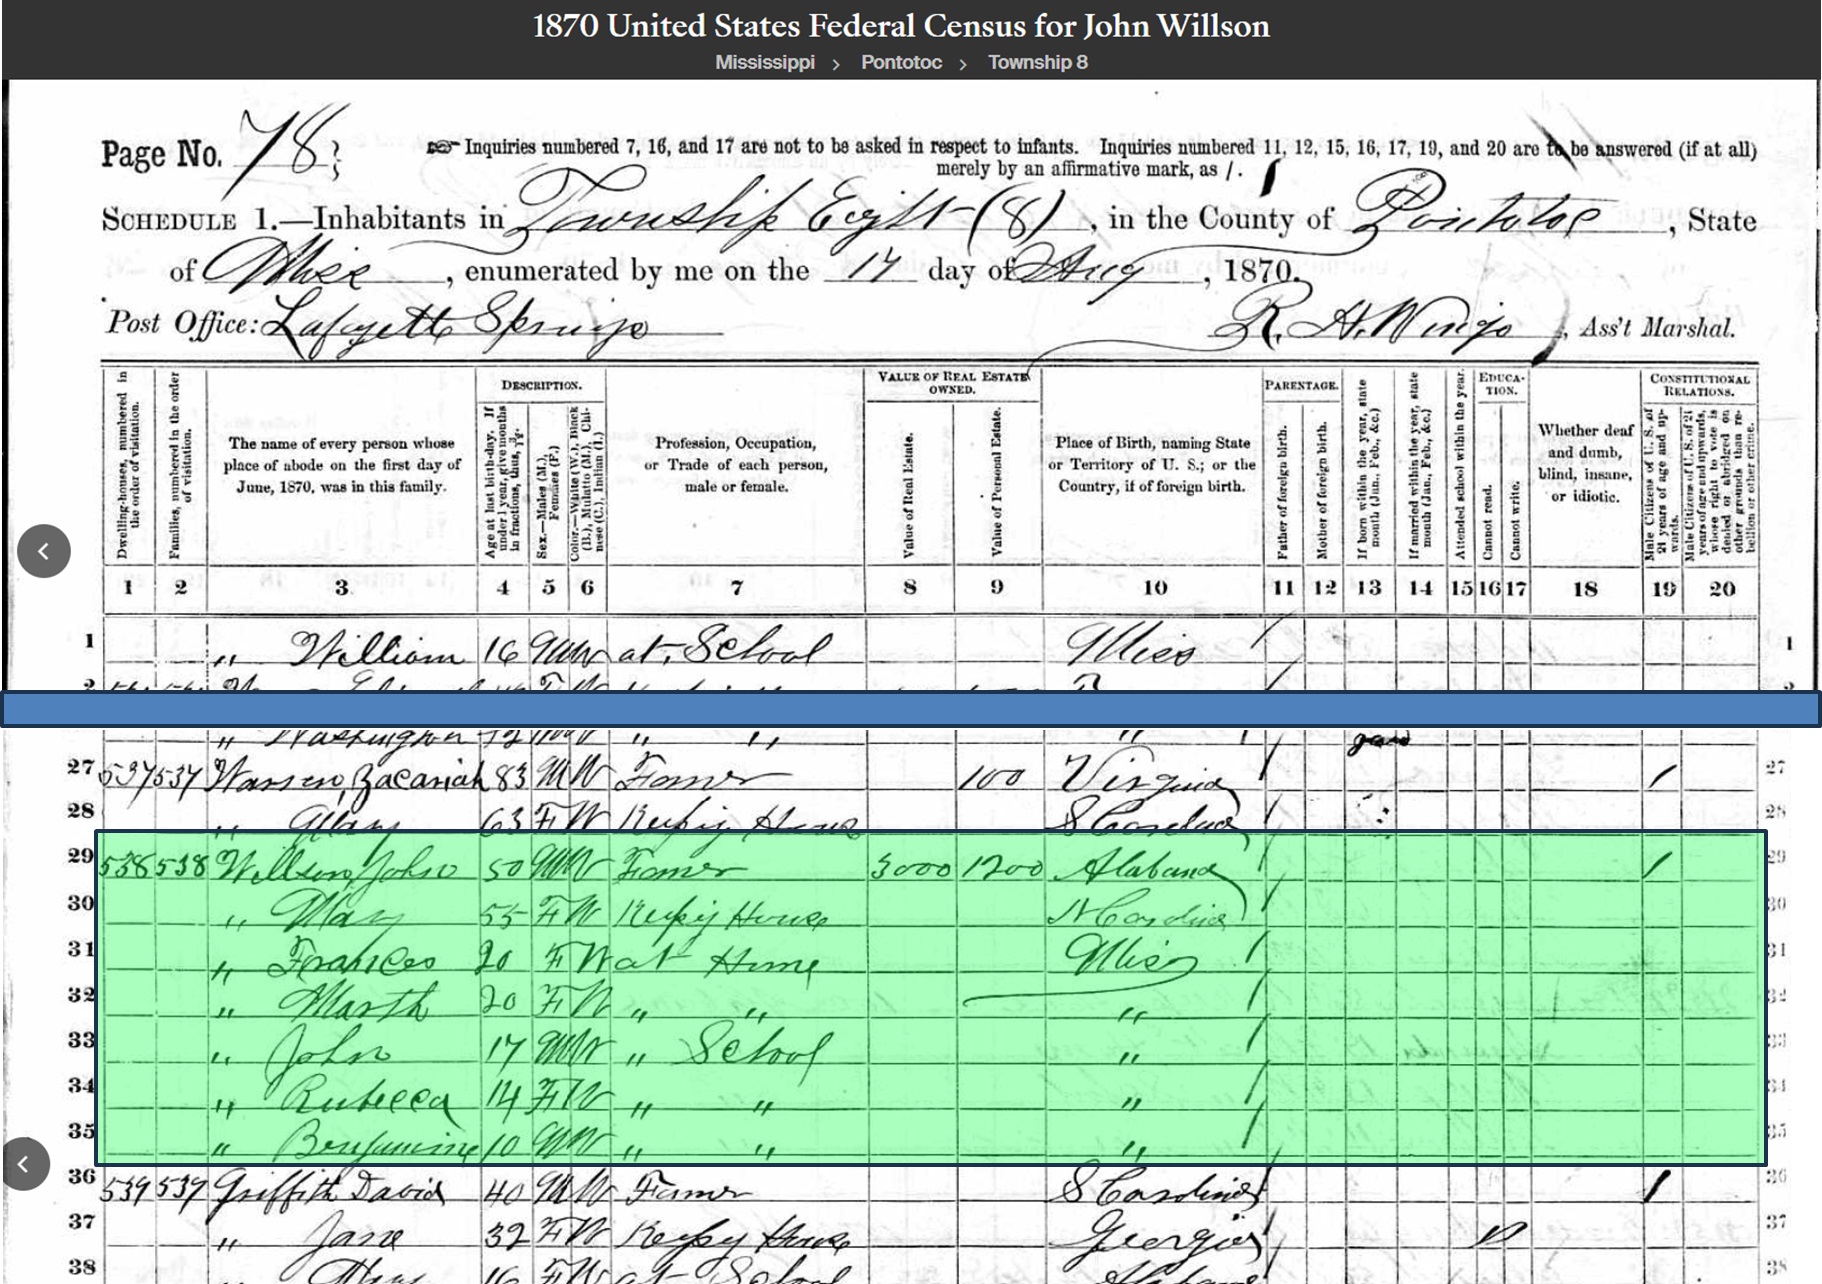 1870 United States Federal Census for John Willson
Mississippi > Pontotoc > Township 8
Page No. 78 ☞ Inquiries numbered 7, 16, and 17 are not to be asked in respect to infants. Inquiries numbered 11, 12, 15, 16, 17, 19, and 20 are to be answered (if at all)
merely by an affirmative mark, as /.
SCHEDULE 1.—Inhabitants in Township Eight (8), in the County of Pontotoc, State
of Miss, enumerated by me on the 14 day of Aug, 1870.
Post Office: Lafayett Springs R. H. Wingo, Ass't Marshal.
Dwelling-houses, numbered in the order of visitation.
Families, numbered in the order of visitation.
The name of every person whose place of abode on the first day of June, 1870, was in this family.
DESCRIPTION.
Age at last birth-day. If under 1 year, give months in fractions, thus, 3/12.
Sex.—Males (M.), Females (F.)
Color.—White (W.), Black (B.), Mulatto (M.), Chinese (C.), Indian (I.)
Profession, Occupation, or Trade of each person, male or female.
VALUE OF REAL ESTATE OWNED.
Value of Real Estate.
Value of Personal Estate.
Place of Birth, naming State or Territory of U. S.; or the Country, if of foreign birth.
PARENTAGE.
Father of foreign birth.
Mother of foreign birth.
If born within the year, state month (Jan., Feb., &c.)
If married within the year, state month (Jan., Feb., &c.)
Attended school within the year.
EDUCATION.
Cannot read.
Cannot write.
Whether deaf and dumb, blind, insane, or idiotic.
CONSTITUTIONAL RELATIONS.
Male Citizens of U. S. of 21 years of age and upwards.
Male Citizens of U. S. of 21 years of age and upwards, whose right to vote is denied or abridged on other grounds than rebellion or other crime.
1 2 3 4 5 6 7 8 9 10 11 12 13 14 15 16 17 18 19 20
1 " William 16 M W at School Miss / 1
2
" Washington " " "
27 537 537 Warren, Zacariah 83 M W Farmer 100 Virginia / / 27
28 " Mary 63 F W Keepig House S Carolina / 28
29 538 538 Willson, John 50 M W Farmer 3000 1200 Alabama / / 29
30 " Mary 55 F W Keepig House N Carolina / 30
31 " Frances 20 F W at Home Miss / 31
32 " Marth 20 F W " " " / 32
33 " John 17 M W " School " / 33
34 " Rubecca 14 F W " " " / 34
35 " Benjamine 10 M W " " " / 35
36 539 539 Griffith David 40 M W Farmer S Carolina / / 36
37 " Jane 32 F W Keepg House Georgia / 37
38 16 F W at School Alabama 38